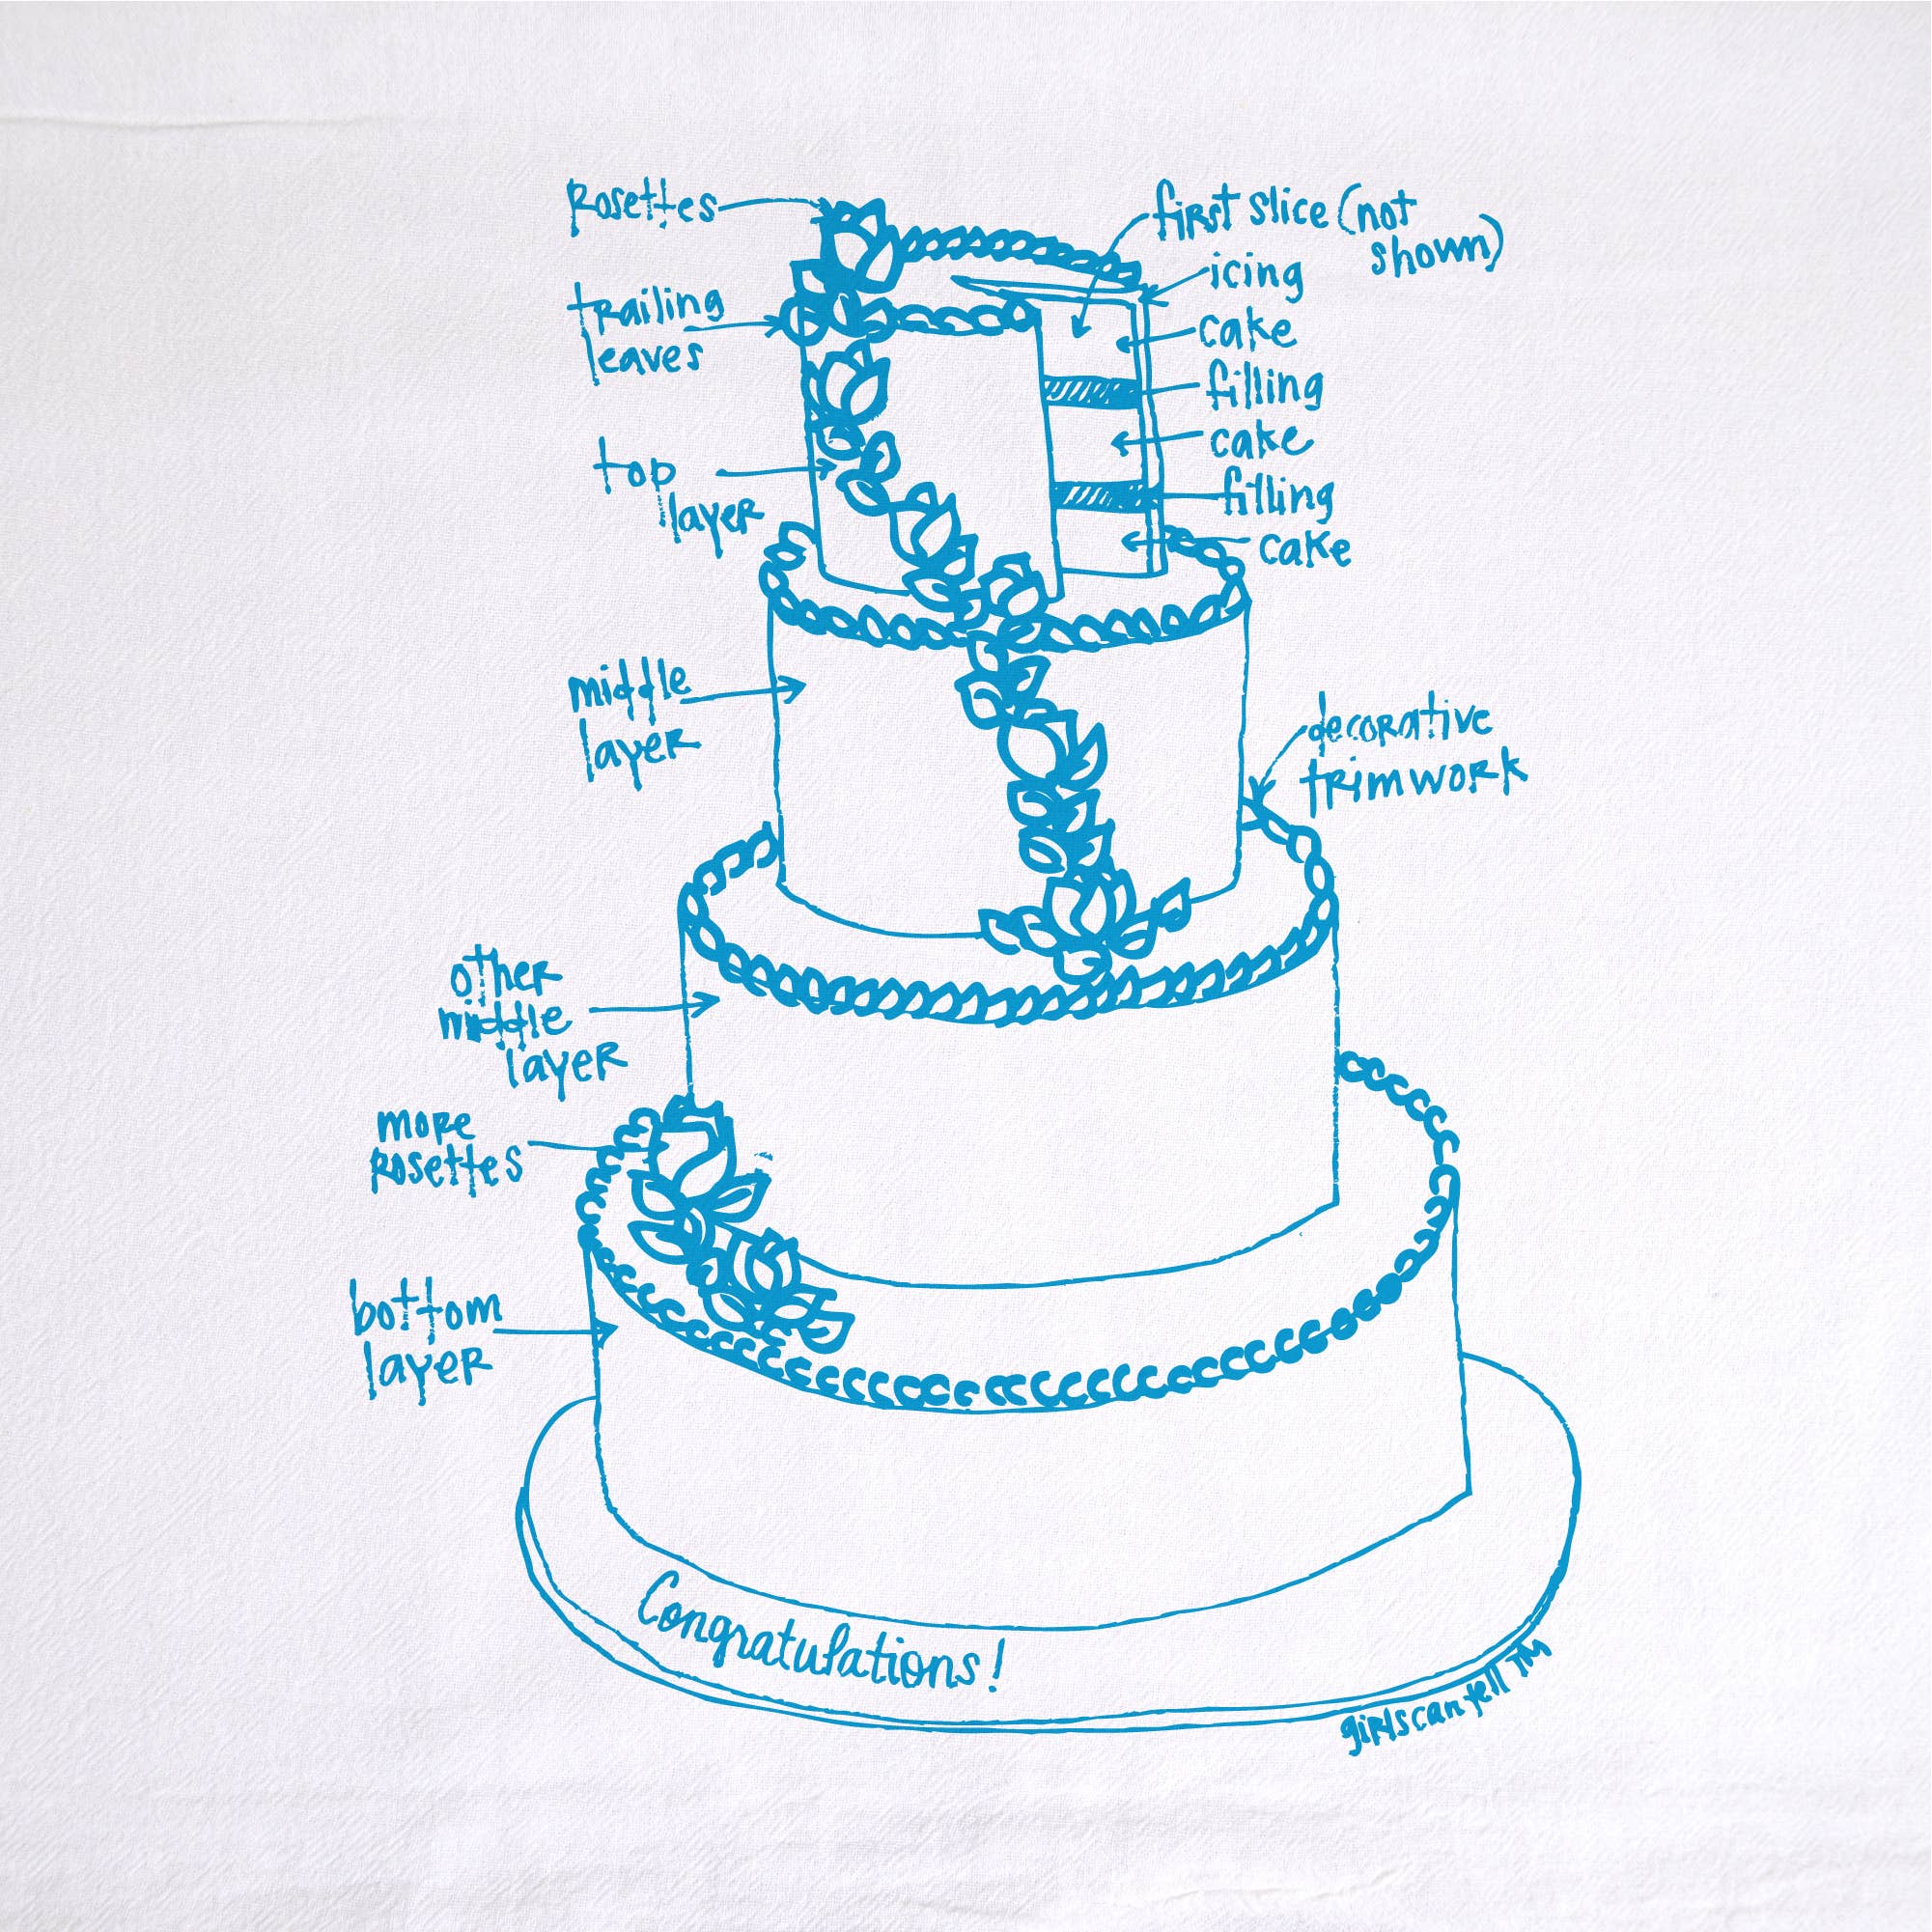 Rosettes
trailing
leaves
top
layer
middle
layer
other
middle
layer
more
rosettes
bottom
layer
first slice (not
shown)
icing
cake
filling
cake
filling
cake
decorative
trimwork
Congratulations!
girlscantell TM